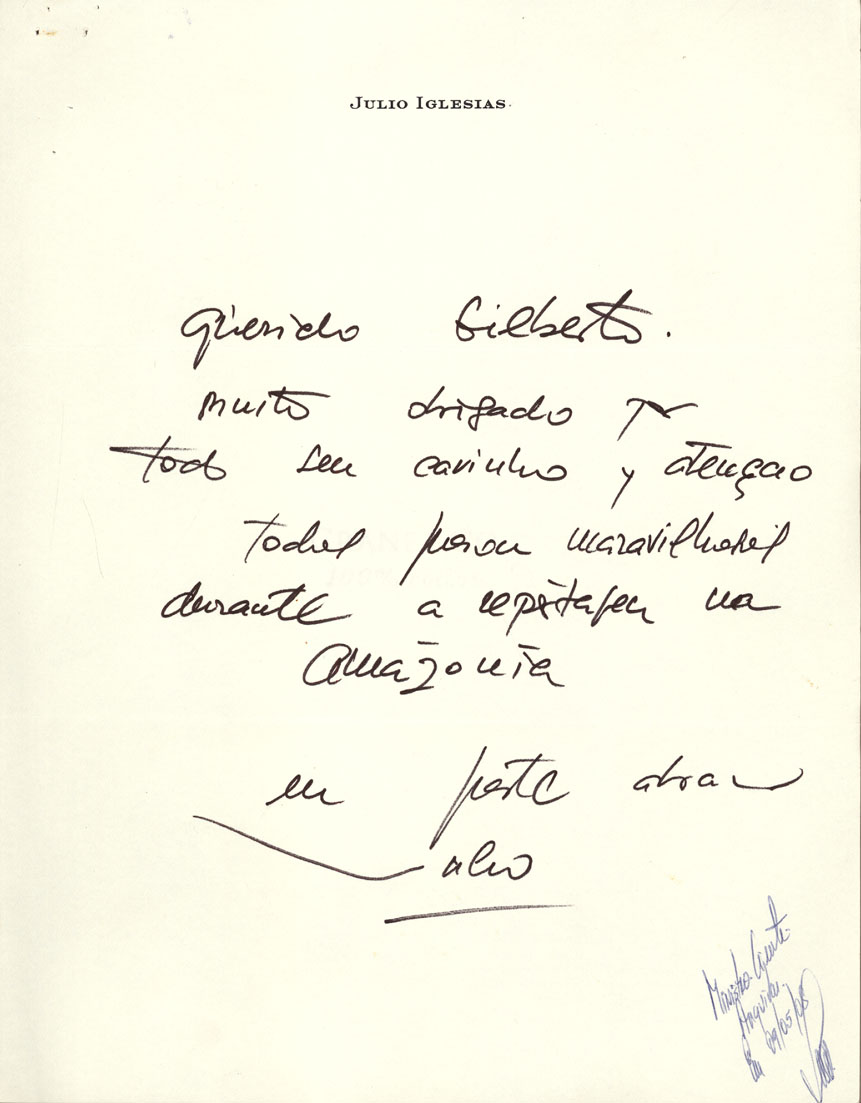 JULIO IGLESIAS
Querido Gilberto.
muito obrigado por
todo seu carinho y atençao
todas maravilhosas
durante a reportagen na
Amazonia
un forte abrazo
Julio
Ministro Ciente
Arquivar
Em 09/05/08